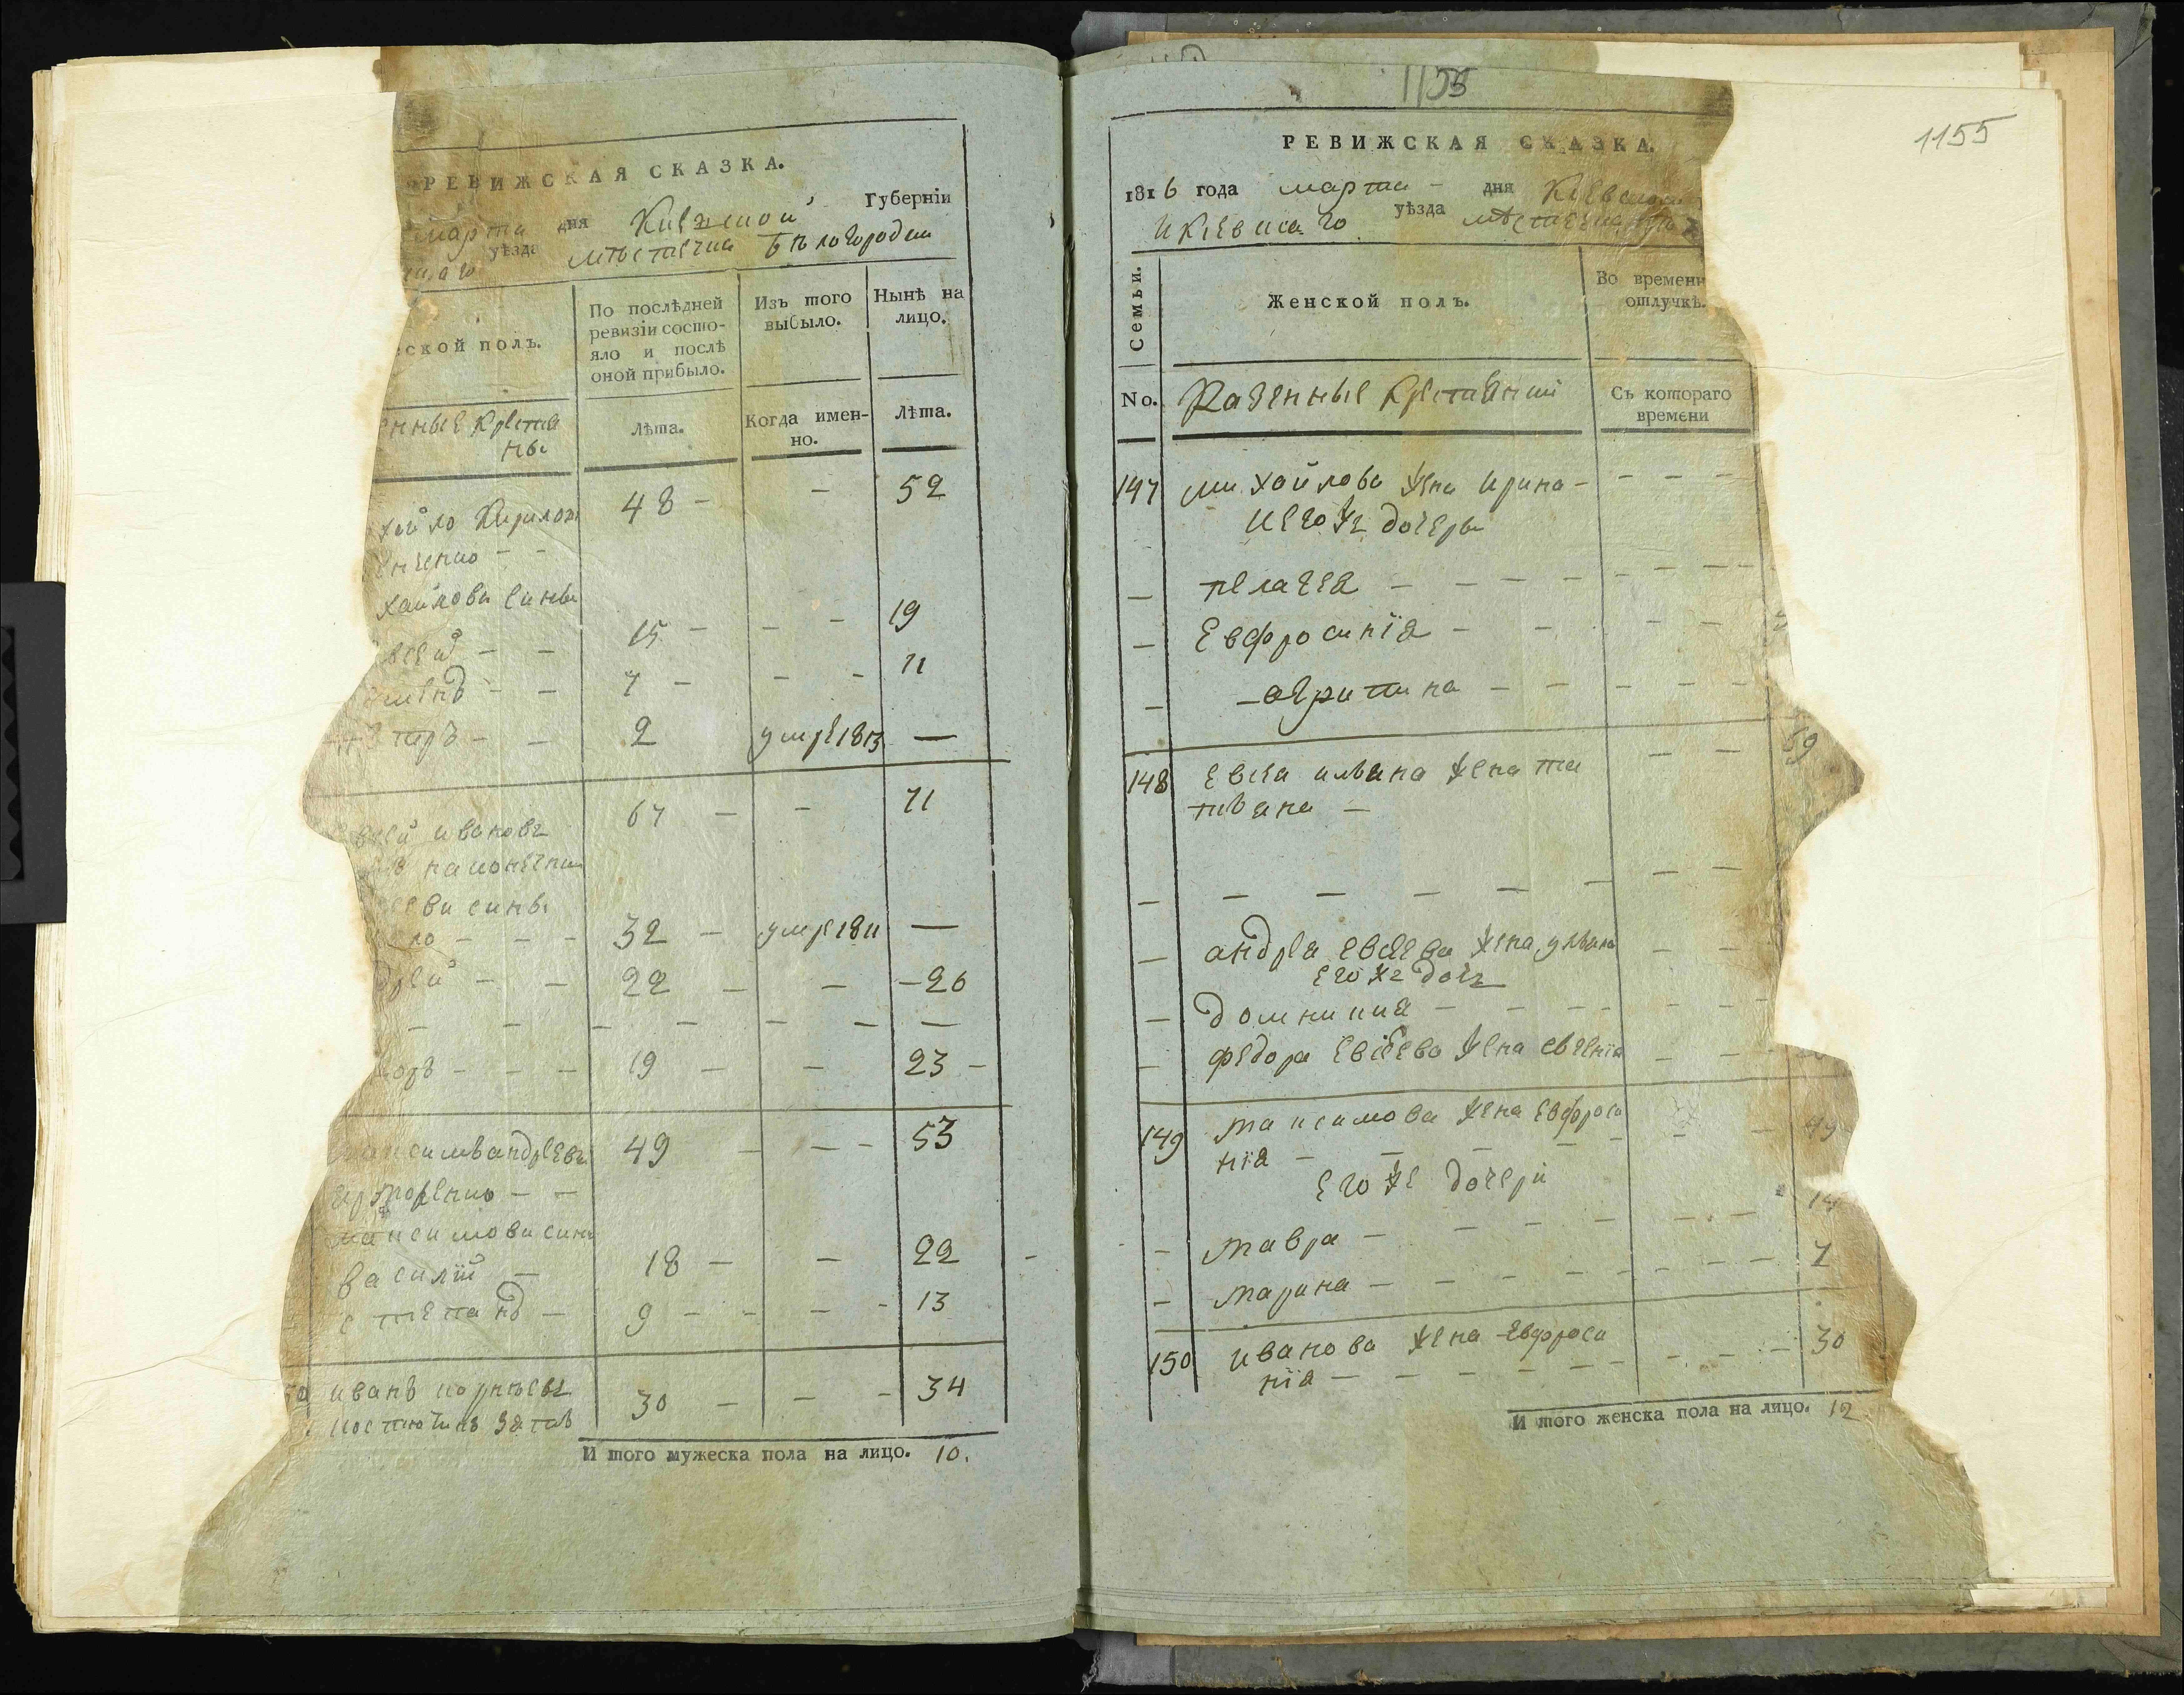 РЕВИЖСКАЯ СКАЗКА.
марта дня Киевской Губерніи
уѣзда мѣстечка Бѣлогородки
ской полъ.
По послѣдней ревизіи состо-
яло и послѣ
оной прибыло.
Изъ того выбыло.
Нынѣ на лицо.
нные крестья
ны
Лѣта.
Когда имен-
но.
Лѣта.
хайло Кирилов 48 - - 52
енченко - -
хайлови сины
15 - - - 19
7 - - - 11
2 умре 1813 —
67 - - 71
евсей ивановъ
севи сины
32 - умре 1811 —
дрей - - 22 - - - 26
- - - - - - -
доръ - - - 19 - - 23 -
максимъ андреевъ 49 - - - 53
максимови сины
василій - 18 - - 22
степанъ - 9 - - - - 13
иванъ корнѣевъ 30 - - - 34
зять
И того мужеска пола на лицо. 10.
1155
1155
РЕВИЖСКАЯ СКАЗКА.
1816 года марта - дня Киевской
и Киевскаго уѣзда мѣстечка
Семьи.
Женской полъ.
Во времени отлучкѣ.
No.
Казенные крестьянки
Съ котораго
времени
147 михайлова жена ирина - - - -
и его жъ дочери
— пелагея - - - - - - -
— Евфросинія - -
— -агрипина - - - - -
148 Евсея жена та - - 59
тіяна —
— - - - - - - -
— андрея евсеева жена уляна - -
его жъ дочь
— домникия - - - -
— федора евсеева жена евгенія - -
149 максимова жена Евфроси
нія - - - - - - 49
его же дочери
- мавра - - - - - - - 14
— марина - - - - - - - 7
150 иванова жена Евфроси
нія - - - - - - - - 30
И того женска пола на лицо. 12